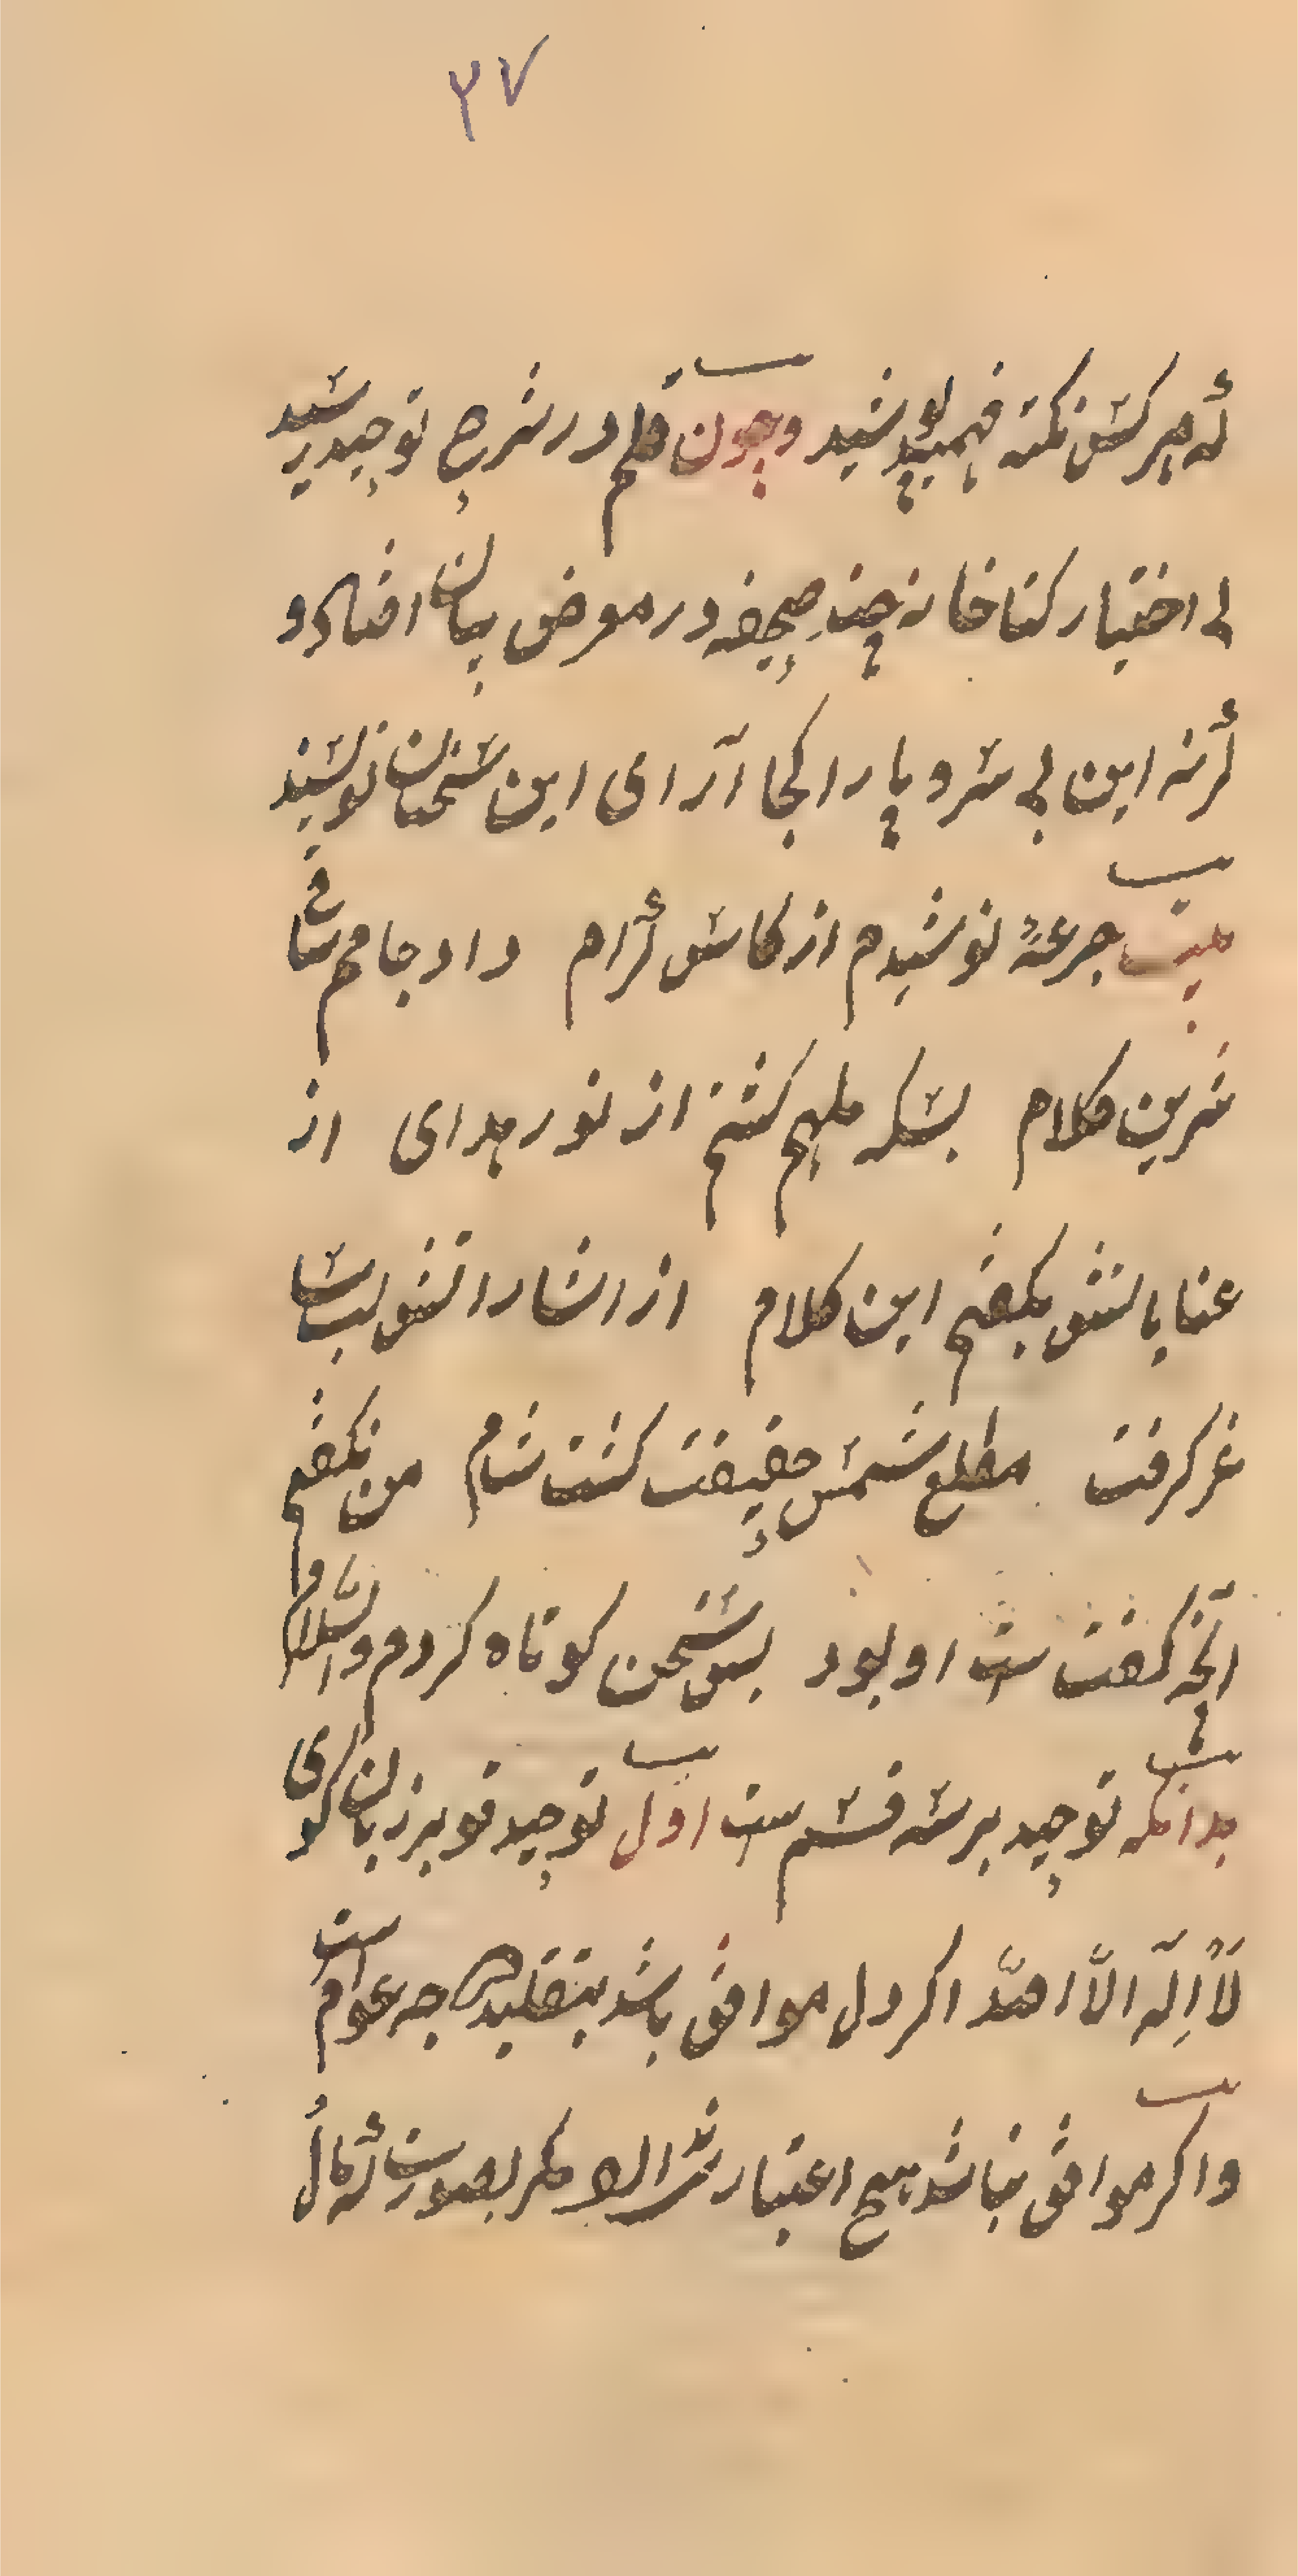 ۳۷
أنه هر کس نکته فهمید پوشید وچون قلم در شرح توحید رسید
بی اختیار کتاخانه چند صحیفه در معرض بیان افتاد و
گرنه این بی سر و پا را کجا آرای این سخنان نوشیند
بیت جرعهٔ نوشیدم از کاس کرام داد جامم ساقی
شرین کلام بسکه ملهم کشتم از نور هدای از
عنایاتش بکفتم این کلام از اشاراتش لب ساغر
غر کرفت مطلع شمس حقیقت کشت شام من نکفتم
آنچه کفتست او بود بس سخن کوتاه کردم والسلام
بدانکه توحید بر سه قسمست اول توحید تو بر زبان کوی
لا اله الا الله اکر دل موافق باشد بتقلید درجه عوام است
واکر موافق نباشد هیچ اعتبار ندارد مکر بصورت